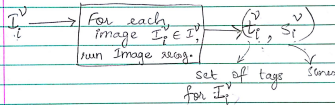 I_i^v → For each image I_i^v ∈ I, run Image recog. → (t_i^v, s_i^v)
set of tags
for I_i^v